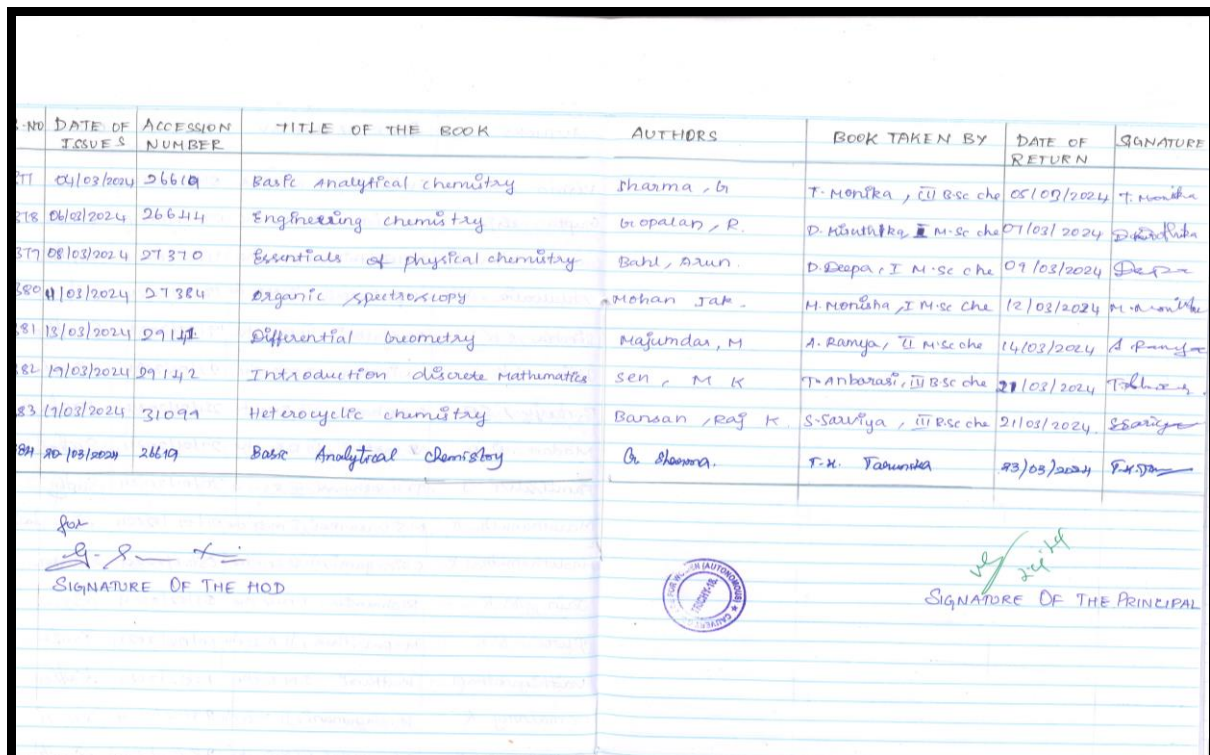 .NO DATE OF ISSUES ACCESSION NUMBER TITLE OF THE BOOK AUTHORS BOOK TAKEN BY DATE OF RETURN SIGNATURE
377 04/03/2024 26619 Basic Analytical chemistry Sharma, G T. Monika, III B.sc che 05/03/2024 T. Monika
378 06/03/2024 26644 Engineering chemistry Gopalan, R. D. M.sc che 07/03/2024
379 08/03/2024 27370 Essentials of physical chemistry Bahl, Arun. D. Deepa, I M.sc che 09/03/2024 Deepa
380 11/03/2024 27384 Organic spectroscopy Mohan Jak. M. Monisha, I M.sc che 12/03/2024 M. Monisha
381 13/03/2024 29141 Differential Geometry Majumdar, M A. Ramya, II M.sc che 14/03/2024 A Ramya
382 19/03/2024 29142 Introduction discrete Mathematics Sen, M K T. Anbarasi, III B.sc che 21/03/2024
383 19/03/2024 31099 Heterocyclic chemistry Bansan, Raj K S. Sarviya, III B.sc che 21/03/2024
384 20/03/2024 26619 Basic Analytical Chemistry G Sharma. T.H. Tarunika 23/03/2024
for
SIGNATURE OF THE HOD
FOR WOMEN (AUTONOMOUS) ★ CAUVERY
TRICHY-18
SIGNATURE OF THE PRINCIPAL